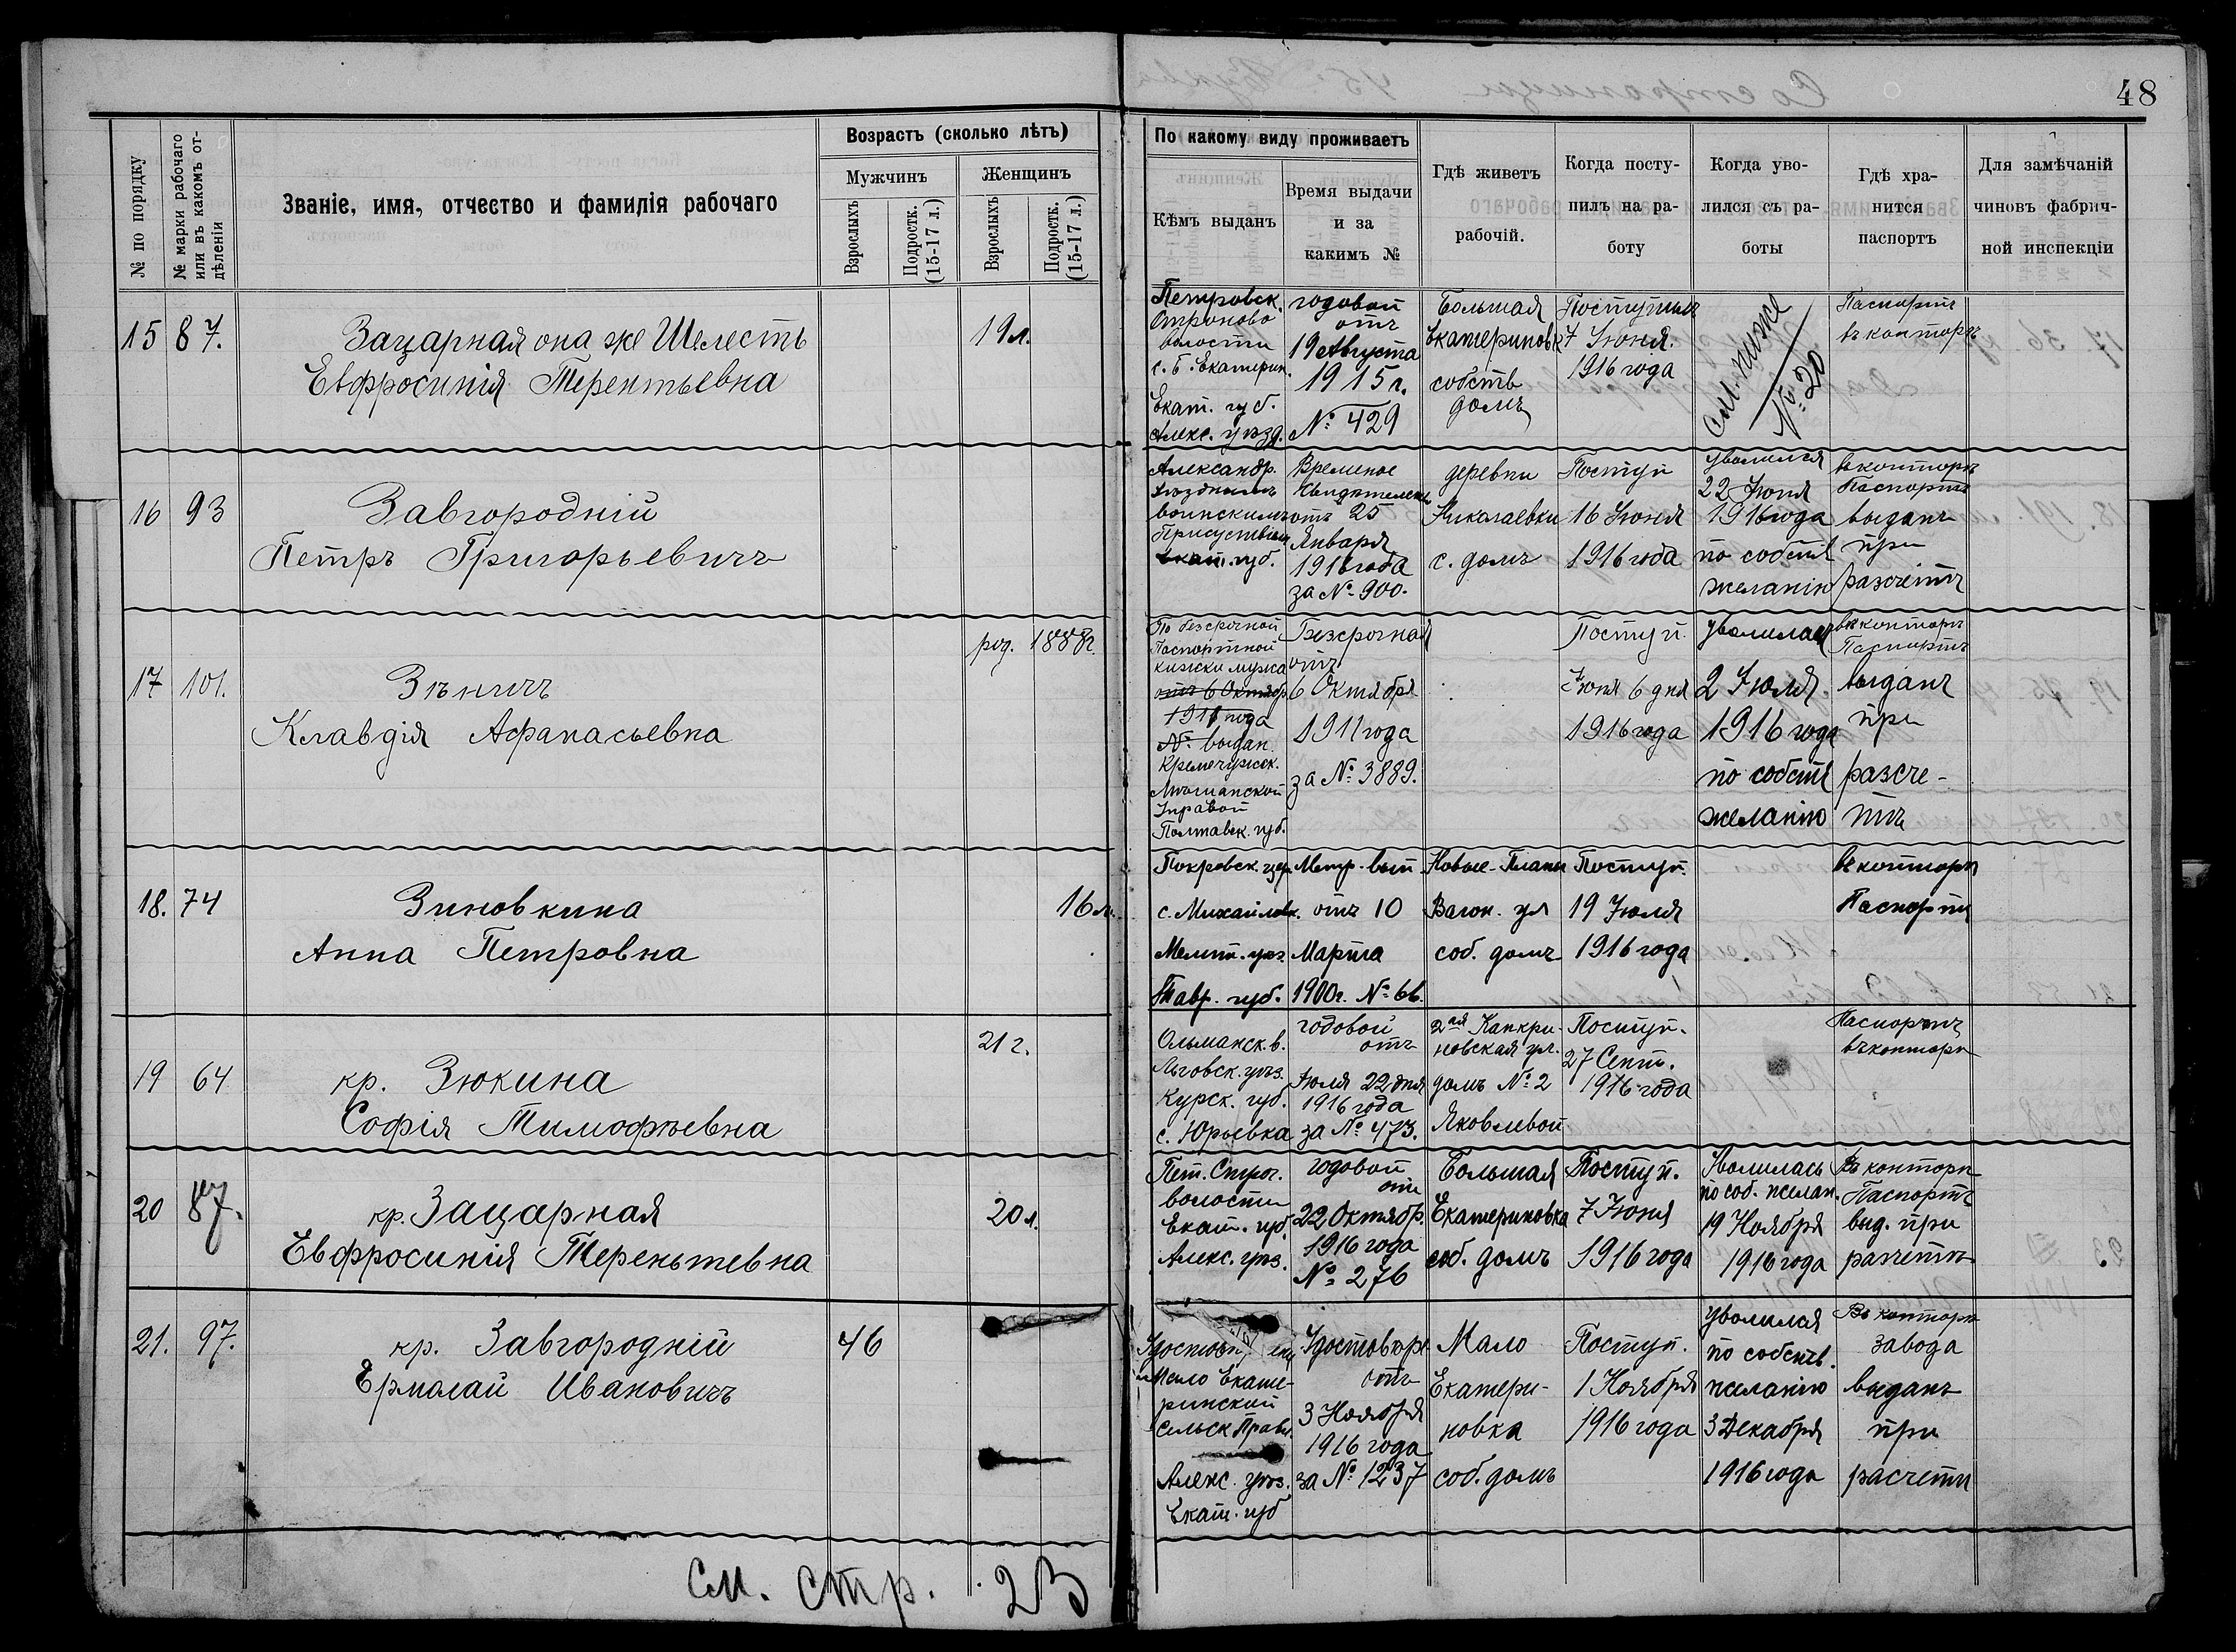 48
№ по порядку
№ марки рабочаго или въ какомъ от-дѣленіи
Званіе, имя, отчество и фамилія рабочаго
Возрастъ (сколько лѣтъ)
Мужчинъ
Женщинъ
Взрослыхъ
Подростк. (15-17 л.)
Взрослыхъ
Подростк. (15-17 л.)
По какому виду проживаетъ
Кѣмъ выданъ
Время выдачи
и за
какимъ №
Гдѣ живетъ
рабочій.
Когда посту-
пилъ на ра-
боту
Когда уво-
лился съ ра-
боты
Гдѣ хра-
нится
паспортъ
Для замѣчаній
чиновъ фабрич-
ной инспекціи
15
87.
Зацарная она же Шелестъ
Евфросинія Терентьевна
19 л.
Петровск.
волости
с. Б. Екатерин.
Екат. губ.
Алекс. уѣзд.
годовой
отъ
19 Августа
1915 г.
№ 429
Большая
Екатериновк
собств
домъ
Поступила
7 Июня.
1916 года
См. ниже
№ 20
Паспортъ
въ конторѣ
16
93
Завгородній
Петръ Григорьевичъ
Александр.
уѣзднымъ
воинскимъ
Присутствіем
Екат. губ.
Временое
свидѣтелство
отъ 25
Января
1916 года
за № 900.
деревни
Николаевки
с. домъ
Поступ
16 Июня
1916 года
уволился
22 Июня
1916 года
по собств
желанію
въ конторѣ
Паспортъ
выданъ
при
разсчетѣ
17
101.
Зѣничъ
Клавдія Афанасьевна
род. 1888 г.
По безсрочной
Паспортной
книжки мужа
отъ 6 Октябр
года
№ выдан.
Кременчужск.
Мѣщанской
Управой
Полтавск. губ.
Безсрочная
отъ
6 Октября
1911 года
за № 3889.
Поступ.
Июня 6 дня
1916 года
Уволилась
2 Июля
1916 года
по собств
желанію
въ конторѣ
Паспортъ
выданъ
при
разсче-
тѣ
18.
74
Зиновкина
Анна Петровна
16 л.
Покровск. цер.
с. Михайловк.
Мелит. уѣз.
Тавр. губ.
Метр. вып.
отъ 10
Марта
1900 г. № 66.
Новые-Планы
Вагон. ул
соб. домъ
Поступ.
19 Июля
1916 года
въ конторѣ
Паспортъ
19
64
кр. Зюкина
Софія Тимофѣевна
21 г.
Ольманск. в.
Льговск. уѣз.
Курск. губ.
с. Юрьевка
годовой
отъ
Июля 22 дня
1916 года
за № 473.
2ая Канкри-
новская ул.
домъ № 2
Яковлевой
Поступ.
27 Сент.
1916 года
Паспортъ
въ конторѣ
20
87.
кр. Зацарная
Евфросинія Тереньтевна
20 л.
Пет.
волости
Екат. губ.
Алекс. уѣз.
годовой
отъ
22 Октябр.
1916 года
№ 276
Большая
Екатериновка
соб. домъ
Поступ.
7 Июня
1916 года
Уволилась
по соб. желан.
19 Ноября
1916 года
Въ конторѣ
Паспортъ
выд. при
расчетѣ
21.
97.
кр. Завгородній
Ермолай Ивановичъ
46
Мало Екате-
ринской
Сельск Правл.
Алекс. уѣз.
Екат. губ
Удостовѣре
отъ
3 Ноября
1916 года
за № 1237
Мало
Екатери-
новка
соб. домъ
Поступ.
1 Ноября
1916 года
Уволился
по собств.
желанію
3 Декабря
1916 года
Въ конторѣ
завода
выданъ
при
расчетѣ
См. стр. 23